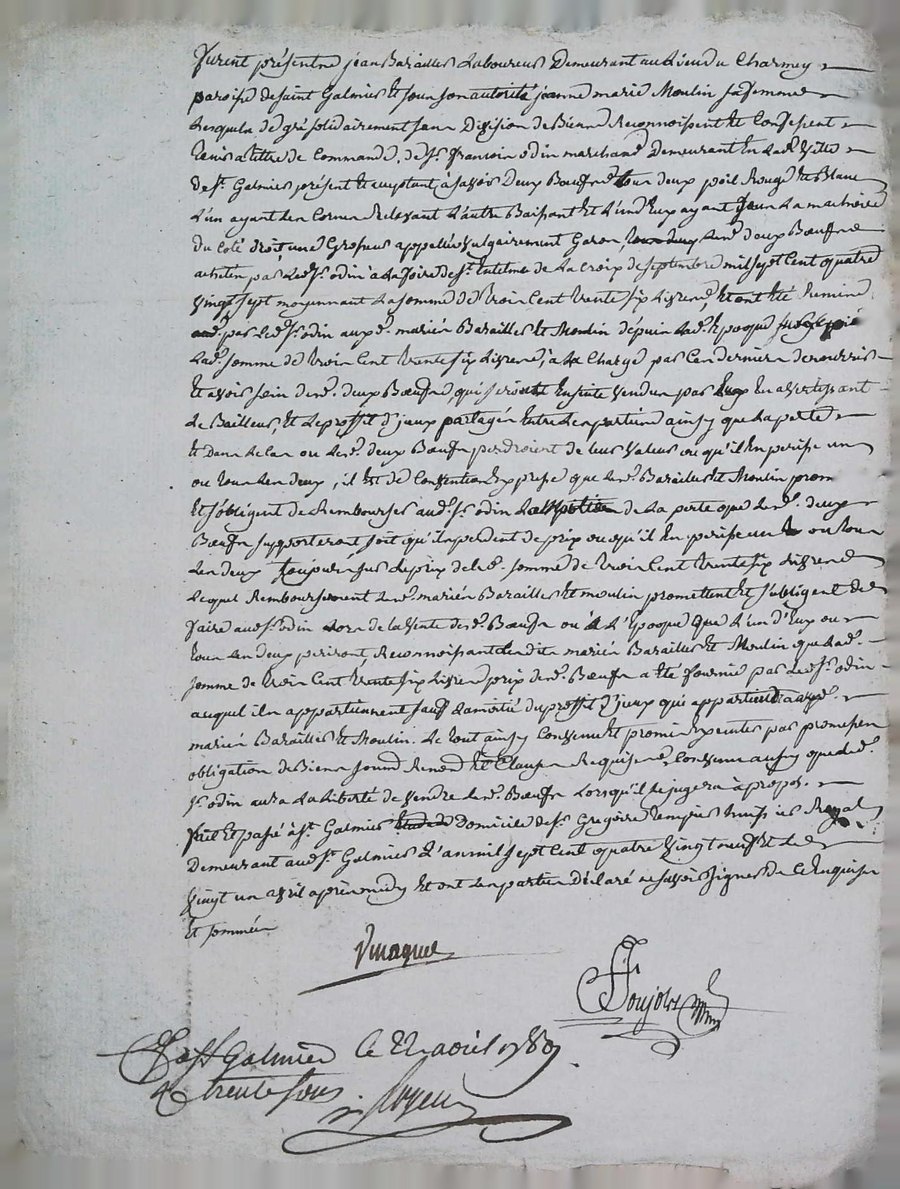 furent présentne jean Barailler Laboureur Demeurant au Lieu du Charmey
paroisse de saint Galmier Et sous son autorité jeanne marie Moulin sa femme
Lesquels de gré solidairement sans Division de Biens Reconnoissent Et Confessent
tenir a tittre de Commande, de Sr. francois odin marchand Demeurant En Lad. Ville
de St. Galmier présent Et acceptant, à savoir Deux Bœufs tous deux poil Rouge Et Blanc
L'un ayant Les Cornes Relevant L'autre Baissant Et L'un d'Eux ayant sous La machoire
du Coté droit une Grosseur appellée Vulgairement Garon, Lesd. deux Bœufs
achetés par Led. Sr. odin a La foire de St. de La Croix de septembre mil sept Cent quatre
Vingt sept moyennant La somme de trois Cent trente six Livres, Et ont été Remis
par Led. Sr. odin aux d. mariés Barailler Et Moulin depuis Lad. Epoque
Lad. somme de trois Cent trente six Livres, a La Charge par Ces derniers de nourrir
Et avoir soin desd. deux Bœufs, qui seront Ensuite Vendus par Eux En avertissant
Le Bailleur, Et Le proffit d'jceux partagés Entre Les parties ainsy que La perte
Et Dans Le Cas ou Lesd. deux Bœufs perdroient de leur Valeur ou qu'il En perisse un
ou tous Les deux, il Est de Convention Expresse que Lesd. Barailler Et Moulin prom
Et s'obligent de Rembourser aud. Sr. odin La moitié de La perte que Lesd. deux
Bœufs supporteront soit qu'ils perdent de prix ou qu'il En perisse un ou tous
Les deux toujours sur Le prix de lad. somme de trois Cent trente six Livres
Lequel Remboursement Lesd. mariés Barailler Et moulin promettent Et s'obligent de
faire aud. Sr. odin Lors de La Vente desd. Bœufs ou à L'Epoque que L'un d'Eux ou
tous Les deux periront, Reconnoissant Lesdits mariés Barailler Et Moulin que Lad.
somme de trois Cent trente six Livres prix desd. Bœufs a été fournie par Led. Sr. odin
auquel ils appartiennent sauf La moitié du proffit d'jceux qui appartient auxd.
mariés Barailler Et Moulin. Le tout ainsy Convenu Et promis Executer par promesses
obligation de Biens soumis Renon. Et Clauses Requises, Convenu aussy que led.
Sr. odin aura La Liberté de Vendre Lesd. Bœufs Lorsqu'il Le jugera à propos.
fait Et passé à St. Galmier Domicile de Sr. Grégoire huissier Royal
Demeurant aud. St. Galmier L'an mil sept Cent quatre Vingt neuf Et Le
Vingt un avril après midy Et ont Les parties Déclaré ne savoir signer de Ce Enquises
Et sommés
Pujolz
a St Galmier le 22 avril 1789
trente sous